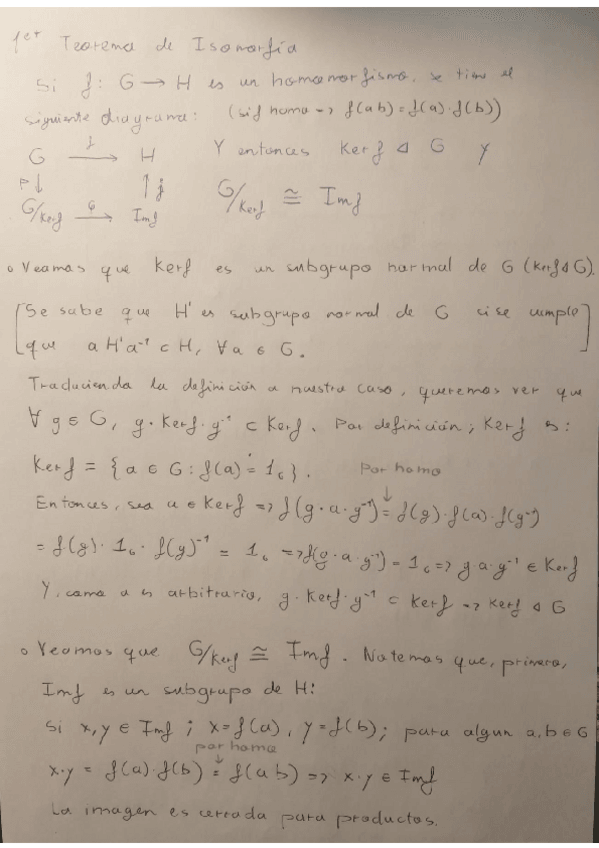 1er Teorema de Isomorfía
Si f: G → H es un homomorfismo, se tiene el
siguiente diagrama: (si f homo => f(ab) = f(a)·f(b))
G —f→ H Y entonces Ker f ⊲ G y
p↓ ↑j G/Ker f ≅ Im f
G/Ker f —φ→ Im f
• Veamos que Ker f es un subgrupo normal de G (Ker f ⊲ G).
[Se sabe que H' es subgrupo normal de G si se cumple
que a H' a⁻¹ ⊂ H, ∀ a ∈ G.]
Traduciendo la definición a nuestro caso, queremos ver que
∀ g ∈ G, g · Ker f · g⁻¹ ⊂ Ker f. Por definición, Ker f es:
Ker f = {a ∈ G : f(a) = 1G}. por homo
Entonces, sea a ∈ Ker f => f(g·a·g⁻¹) = f(g)·f(a)·f(g⁻¹)
= f(g) · 1G · f(g)⁻¹ = 1G => f(g·a·g⁻¹) = 1G => g·a·g⁻¹ ∈ Ker f
Y, como a es arbitrario, g · Ker f · g⁻¹ ⊂ Ker f => Ker f ⊲ G
• Veamos que G/Ker f ≅ Im f. Notemos que, primero,
Im f es un subgrupo de H:
Si x, y ∈ Im f ; x = f(a), y = f(b); para algun a, b ∈ G
por homo
x·y = f(a)·f(b) = f(ab) => x·y ∈ Im f
La imagen es cerrada para productos.